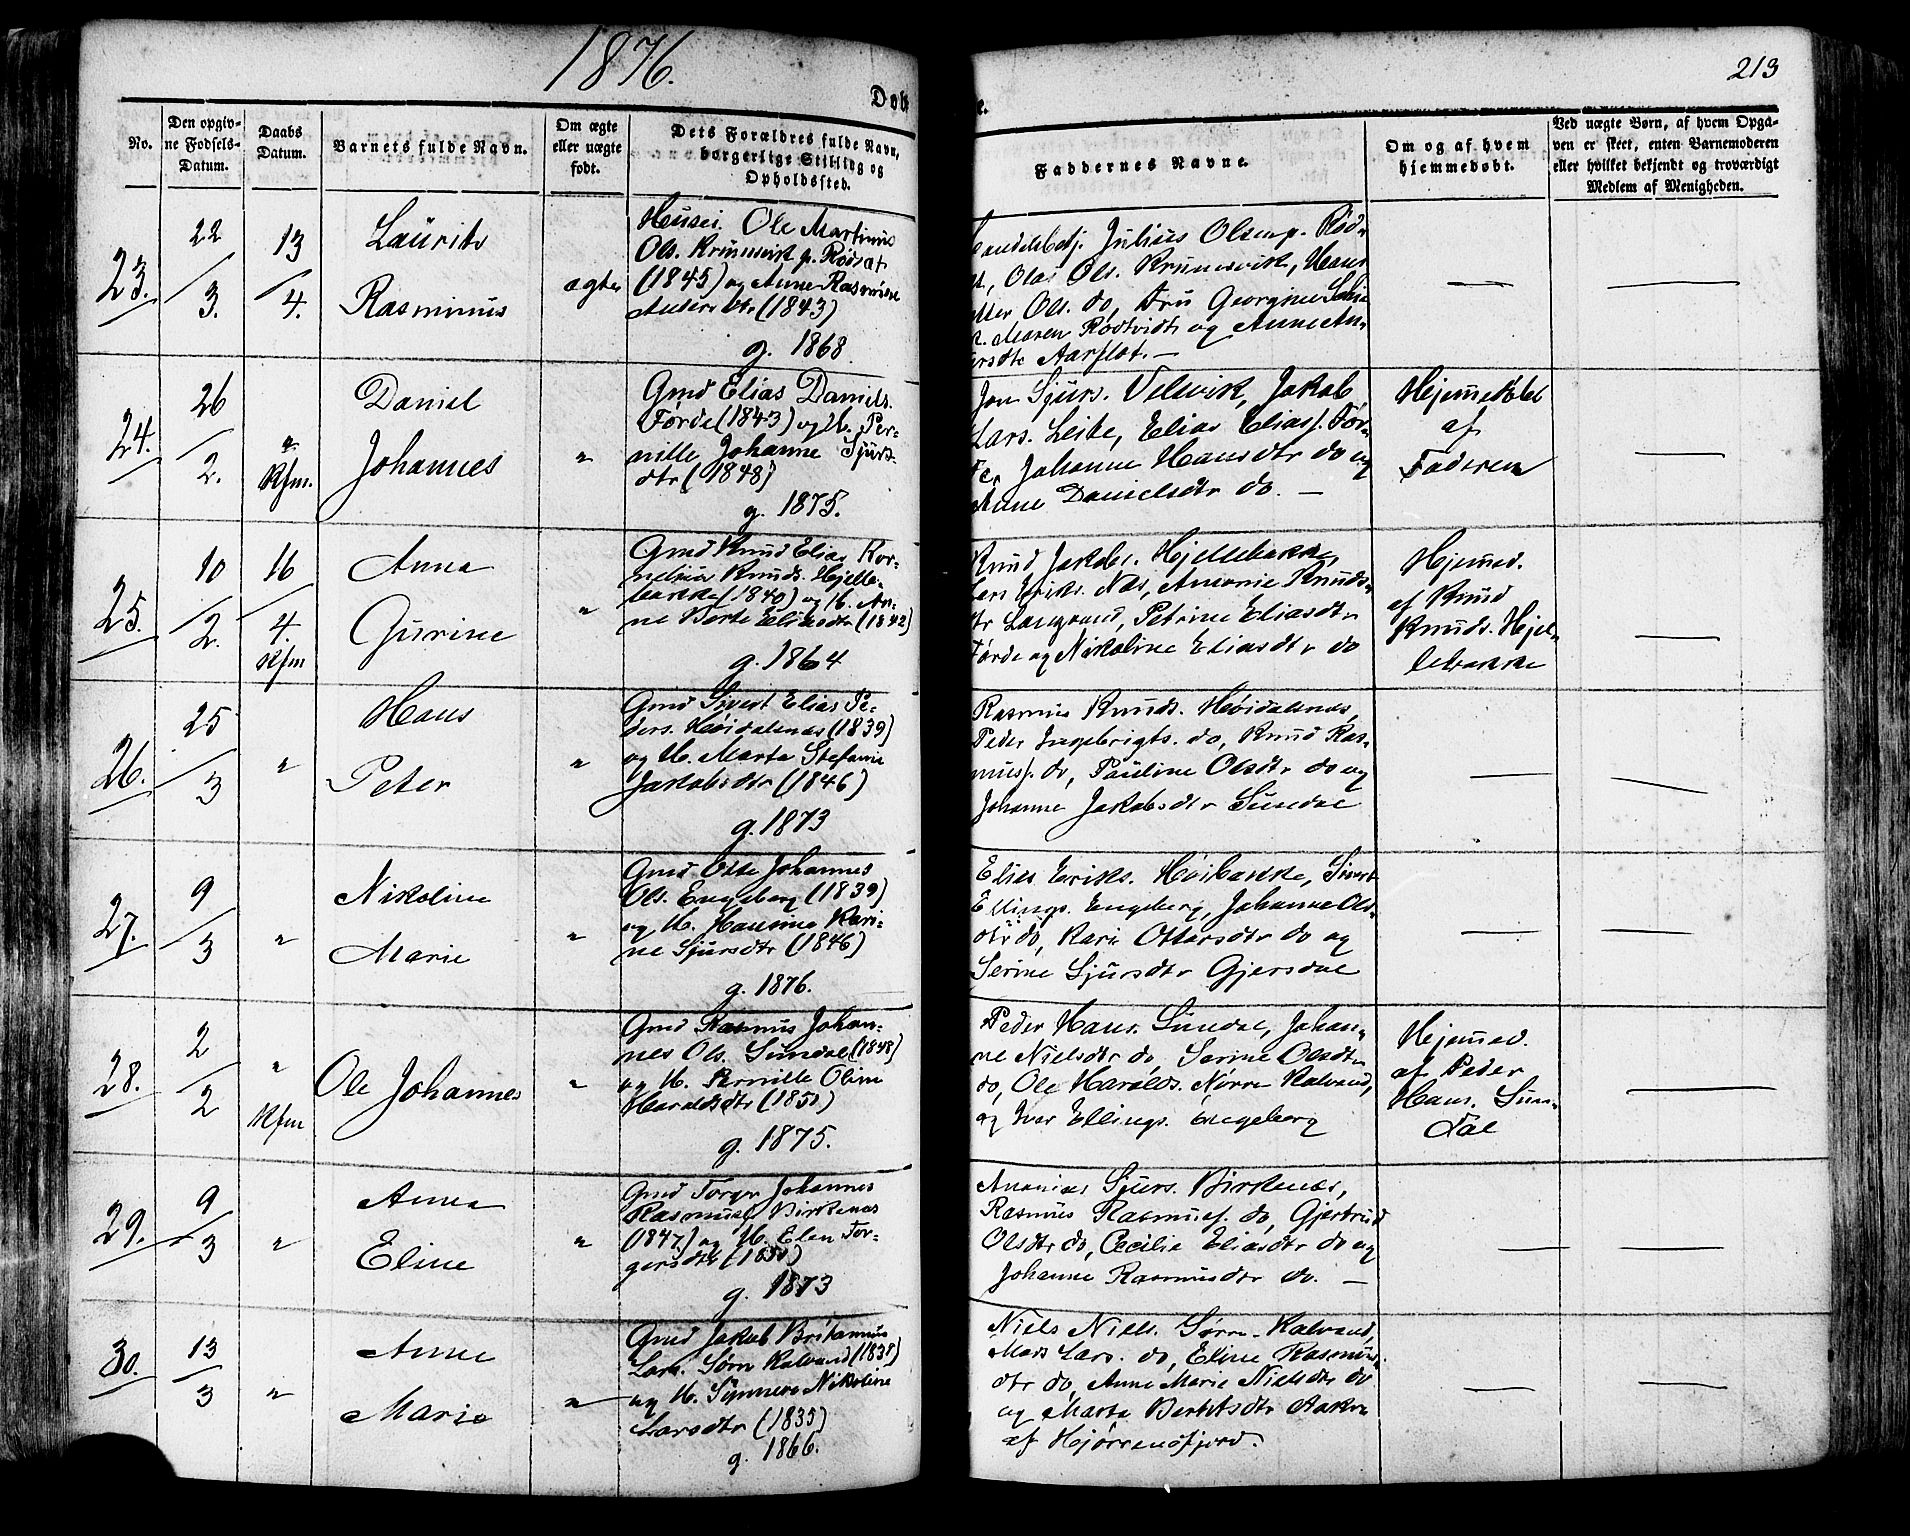 1876.
213
Døb
e.
No.
Den opgiv-
ne Fødsels-
Datum.
Daabs
Datum.
Barnets fulde Navn.
Om ægte
eller uægte
født.
Dets Forældres fulde Navn,
borgerlige Stilling og
Opholdssted.
Faddernes Navne.
Om og af hvem
hjemmedøbt.
Ved uægte Børn, af hvem Opga-
ven er skeet, enten Barnemoderen
eller hvilket bekjendt og troværdigt
Medlem af Menigheden.
23.
22/3.
13/4.
Laurits
Rasminus
ægte
Ole Martinus
Ols. Krumsvik p. Rødsæt
(1845) og Anne Rasmine
Anders dtr (1843)
g. 1868.
Julius Olsen p. Rød-
Olai Ols. Krumsvik, Hans
Ols. do, Fru Georgine
Maren Rødtvidt og Anne An-
Aarflot. —
24.
26/2.
"
Kfm.
Daniel
Johannes
"
Gmd Elias Daniels.
Førde (1843) og H. Per-
nille Johanne Sjurs-
dtr (1848)
g. 1875.
Jon Sjurs. Velsvik, Jakob
Lars. Leite, Elias Eliass. Før-
de, Johanne Hansdtr do og
Danielsdtr do. —
Hjemmedøbt
af
Faderen
25.
10/2.
16/4.
Kfm
Anna
Gurine
"
Gmd Knud Elias Kor-
nelius Knuds. Hjelle-
bakke (1840) og H. An-
ne Berte Eliasdtr (1842)
g. 1864
Knud Jakobs. Hjellebakke,
Eriks. Næs, Knuds-
dtr Petrine Eliasdtr
Førde og Nikoline Eliasdtr do
Hjemmed.
af Knud
Knuds. Hjel-
lebakke
26.
25/3
"
Hans
Peter
"
Gmd Sivert Elias Pe-
ders. Høidalsnæs (1839)
og H. Marta Stefanie
Jakobsdtr (1846)
g. 1873
Rasmus Knuds. Høidalsnæs,
Peder Ingebrigts. do, Knud Ras-
muss. do, Pauline Olsdtr do og
Johanne Jakobsdtr Sundal
27.
9/3
"
Nikoline
Marie
"
Gmd Johannes
Ols. Engeberg (1839)
og H. Hansine Kari-
ne Sjursdtr (1846)
g. 1876.
Elias Eriks. Høibakke, Sivert
Ellings. Engeberg, Johanne Ols-
dtr do, Kari Ottarsdtr do og
Serine Sjursdtr Gjersdal
28.
2/2
"
Kfm
Ole Johannes
"
Gmd Rasmus Johan-
nes Ols. Sundal (1848)
og H. Pernille Oline
Haraldsdtr (1850)
g. 1875.
Peder Hans. Sundal, Johan-
ne Nielsdtr do, Serine Olsdtr
do, Ole Haralds. Nørre Kalvand,
og Iver Ellings. Engeberg
Hjemmed.
af Peder
Hans. Sun-
dal
29.
9/3
"
Anna
Eline
"
Gmd Torger Johannes
Rasmuss. Birkenæs
(1847) og H. Elen Tor-
gersdtr (1850)
g. 1873
Ananias Sjurs. Birkenæs,
Rasmus Rasmuss. do, Gjertrud
Olsdtr do, Cecilie Eliasdtr do og
Johanne Rasmusdtr do. —
30.
13/3
"
Anne
Marie
"
Gmd Jakob Britanus
Lars. Sørre Kalvand (1838)
og H. Synneve Nikoline
Larsdtr (1835)
g. 1866.
Niels Niels. Sørre Kalvand,
Mads Lars. do, Eline Rasmus-
dtr do, Anne Marie Nielsdtr do
og Marta
af Hjørrendfjord.